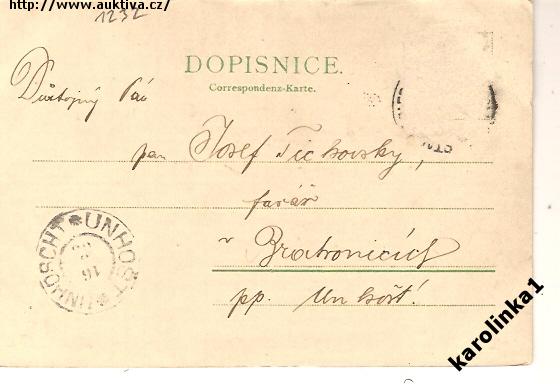 http://www.auktiva.cz/
1232
DOPISNICE.
Correspondenz-Karte.
Důstojný Pán
pan Josef Tichovský,
farář
v Bratronicích
pp. Unhošť!
UNHOŠŤ * UNHOSCHT *
16
karolinka1